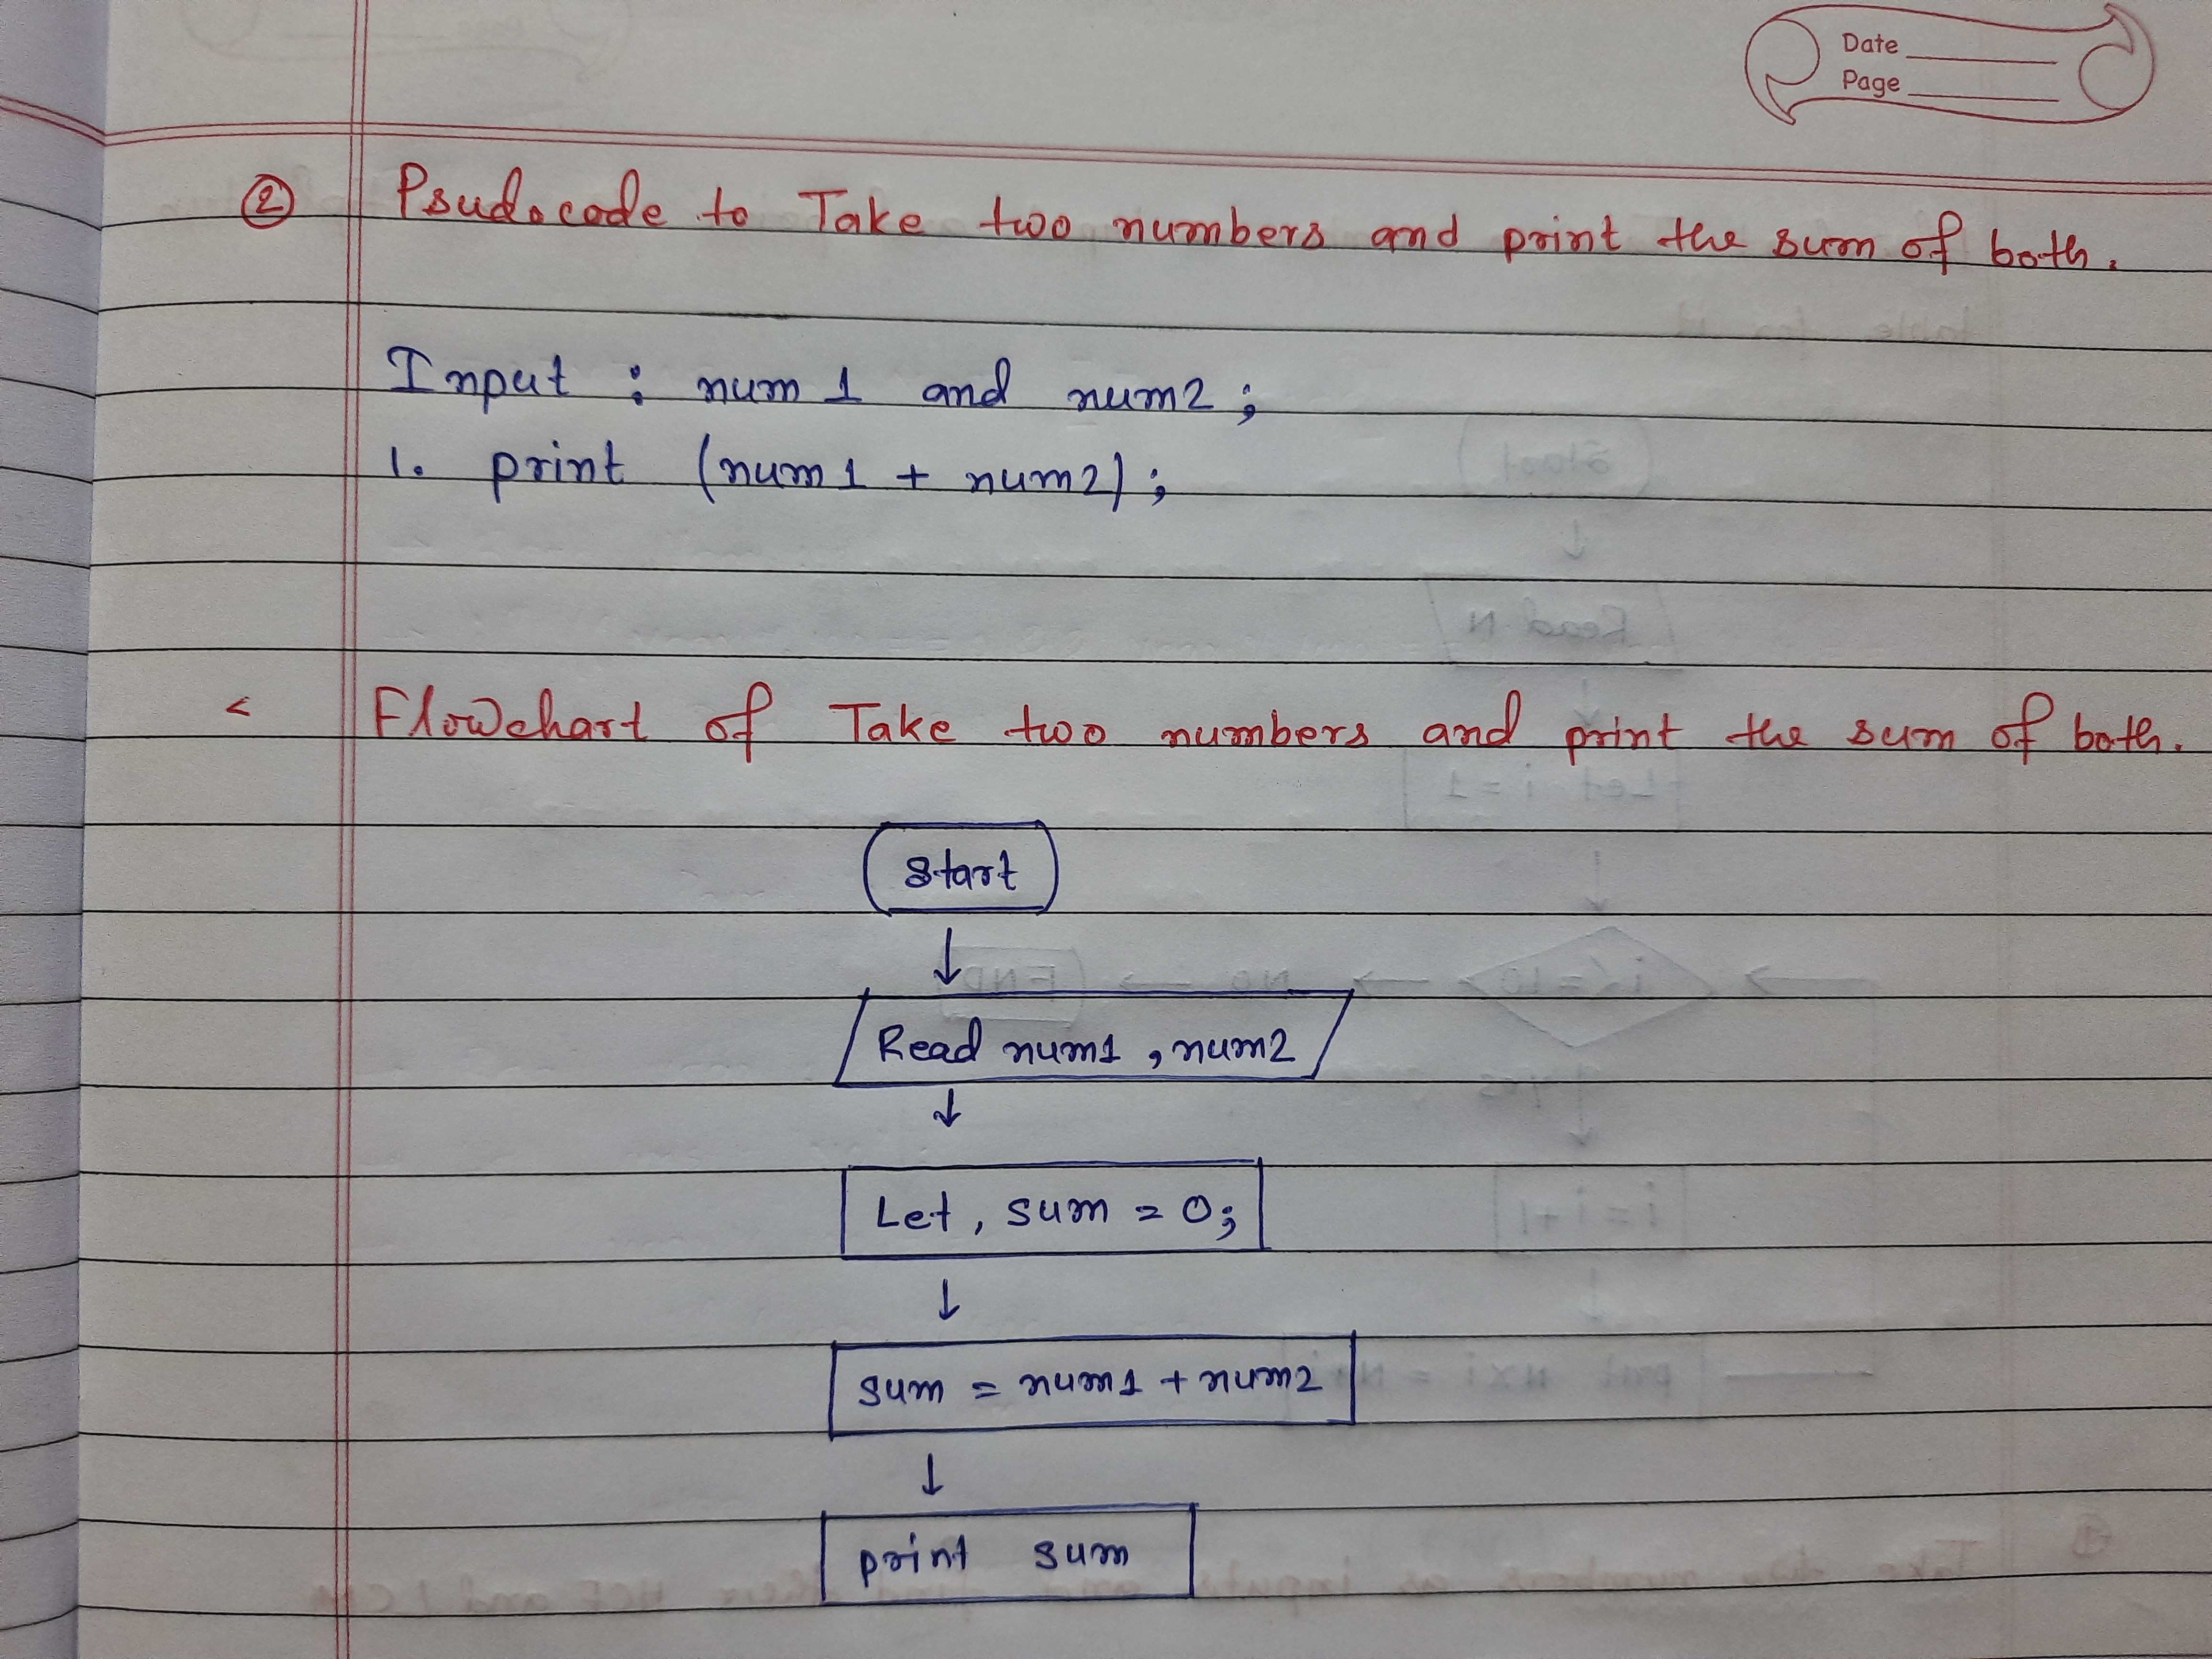 Date
Page
② Psudocode to Take two numbers and print the sum of both.
Input : num 1 and num2 ;
1. print (num1 + num2) ;
< Flowchart of Take two numbers and print the sum of both.
Start
↓
Read num1 , num2
↓
Let , sum = 0;
↓
sum = num1 + num2
↓
print sum